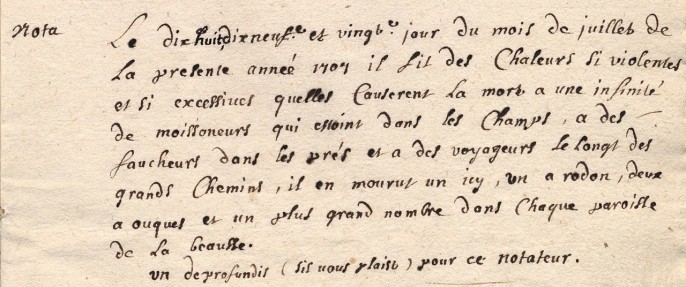 Nota
Le dix huit dix neuf.e et vingt.e jour du mois de juillet de
La presente année 1707 il fit des Chaleurs si violentes
et si excessives quelles Causerent La mort a une infinité
de moissoneurs qui estoint dans les Champs, a des
faucheurs dans les prés et a des voyageurs le longt des
grands Chemins, il en mourut un icy, un a rodon, deux
a ouques et un plus grand nombre dans Chaque paroisse
de La beausse.
un de profundis (sil vous plaist) pour ce notateur.